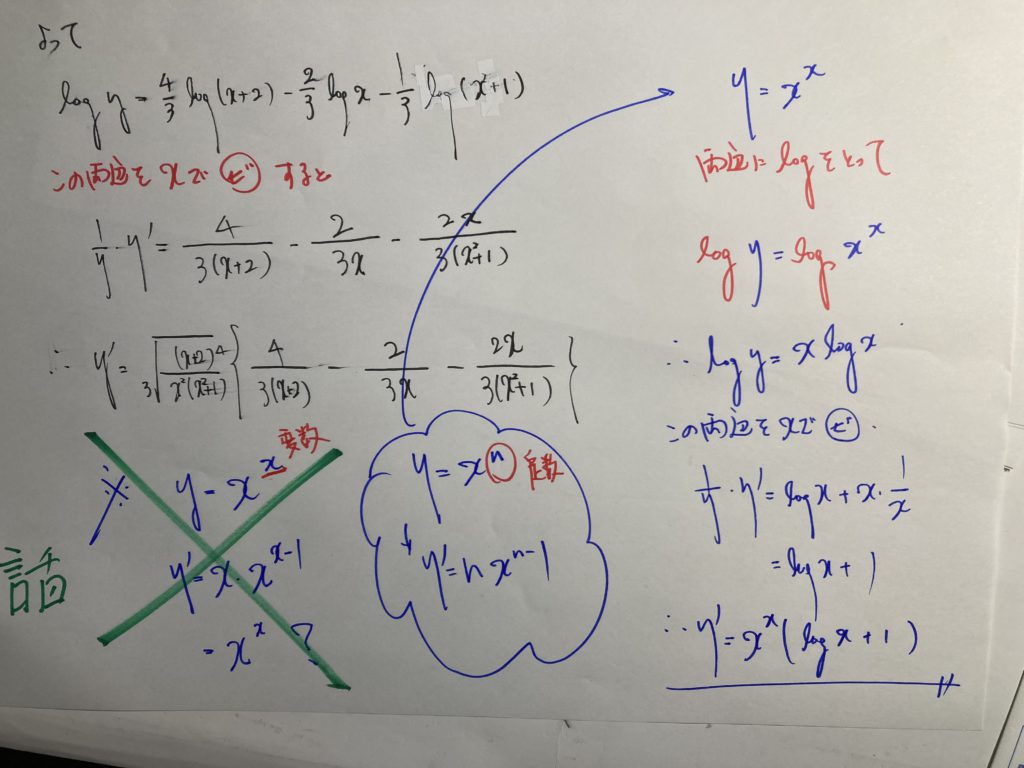 よって
log y = 4/3 log(x+2) - 2/3 log x - 1/3 log(x²+1)
この両辺を xで ビ すると
1/y · y' = 4/3(x+2) - 2/3x - 2x/3(x²+1)
∴ y' = ³√((x+2)⁴/x²(x²+1)) { 4/3(x+2) - 2/3x - 2x/3(x²+1) }
※ y = x^x 変数
y' = x · x^(x-1)
= x^x ?
y = x^n 定数
↓ y' = n x^(n-1)
y = x^x
両辺に log をとって
log y = log x^x
∴ log y = x log x
この両辺を xで ビ.
1/y · y' = log x + x · 1/x
= log x + 1
∴ y' = x^x (log x + 1)